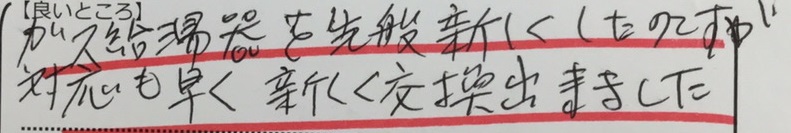 【良いところ】
ガス給湯器を先般新しくしたのですが
対応も早く新しく交換出来ました